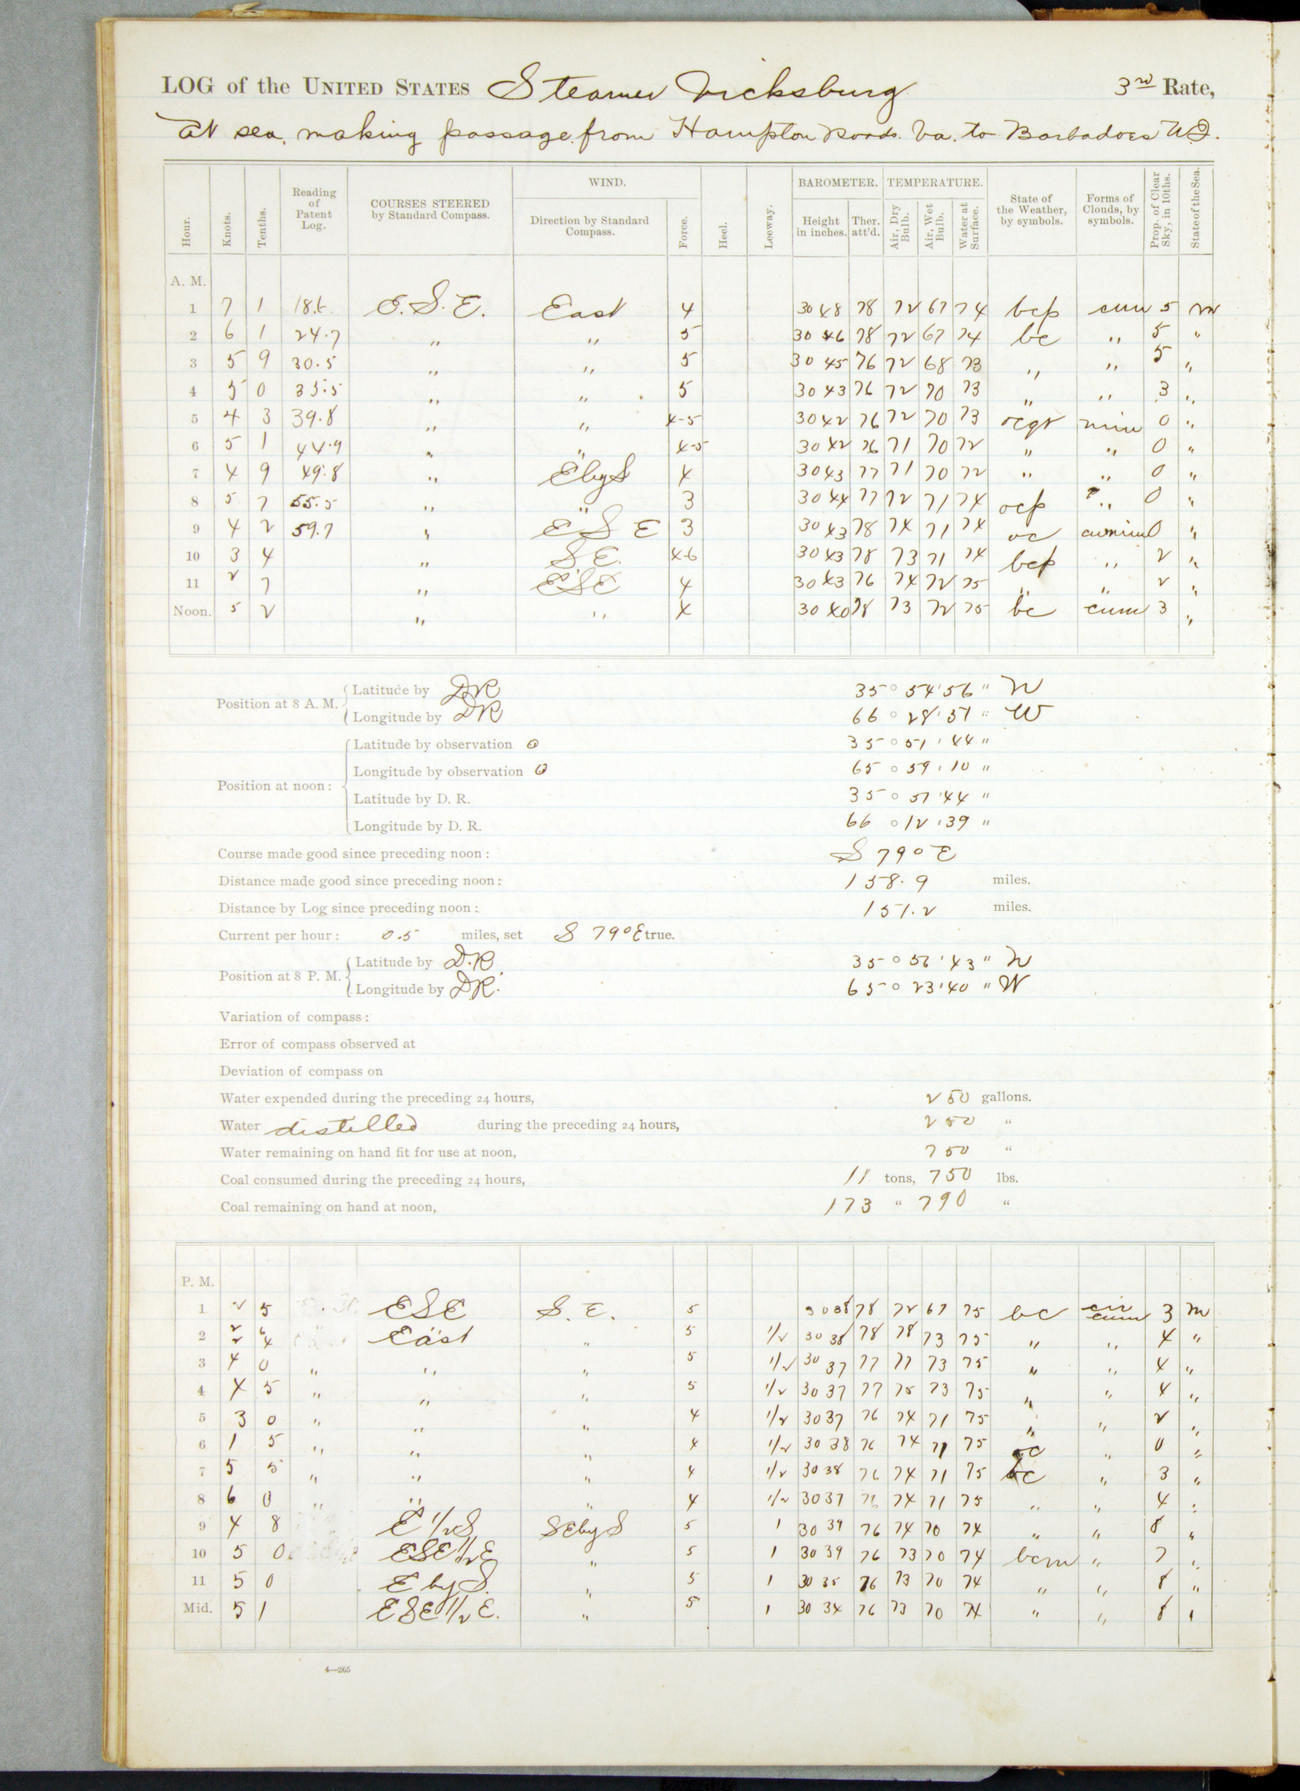 LOG of the UNITED STATES Steamer Vicksburg 3rd Rate,
At sea, making passage from Hampton Roads. Va. to Barbadoes W.I.
Hour. Knots. Tenths. Reading of Patent Log. COURSES STEERED by Standard Compass. WIND. Direction by Standard Compass. Force. Heel. Leeway. BAROMETER. Height in inches. Ther. att'd. TEMPERATURE. Air, Dry Bulb. Air, Wet Bulb. Water at Surface. State of the Weather, by symbols. Forms of Clouds, by symbols. Prop. of Clear Sky, in 10ths. State of the Sea.
A. M.
1 7 1 18.6 E.S.E. East 4 30 48 78 72 67 74 bcp cum 5 m
2 6 1 24.7 " " 5 30 46 78 72 67 74 bc " 5 "
3 5 9 30.5 " " 5 30 45 76 72 68 73 " " 5 "
4 5 0 35.5 " " 5 30 43 76 72 70 73 " " 3 "
5 4 3 39.8 " " 4-5 30 42 76 72 70 73 ocqr nim 0 "
6 5 1 44.9 " " 4-5 30 42 76 71 70 72 " " 0 "
7 4 9 49.8 " EbyS 4 30 43 77 71 70 72 " " 0 "
8 5 7 55.5 " " 3 30 44 77 72 71 74 ocp " 0 "
9 4 2 59.7 " ESE 3 30 43 78 74 71 74 oc cumnim 0 "
10 3 4 " S.E. 4-6 30 43 78 73 71 74 bcp " 2 "
11 2 7 " ESE 4 30 43 76 74 72 75 " " 2 "
Noon. 5 2 " " 4 30 40 78 73 72 75 bc cum 3 "
Position at 8 A. M. Latitude by DR 35° 54' 56" N
Longitude by DR 66° 28' 51" W
Position at noon: Latitude by observation ⊙ 35° 51' 44"
Longitude by observation ⊙ 65° 59' 10"
Latitude by D. R. 35° 51' 44"
Longitude by D. R. 66° 12' 39"
Course made good since preceding noon: S 79° E
Distance made good since preceding noon: 158.9 miles.
Distance by Log since preceding noon: 151.2 miles.
Current per hour: 0.5 miles, set S 79° E true.
Position at 8 P. M. Latitude by D.R. 35° 56' 43" N
Longitude by DR. 65° 23' 40" W
Variation of compass:
Error of compass observed at
Deviation of compass on
Water expended during the preceding 24 hours, 250 gallons.
Water distilled during the preceding 24 hours, 250 "
Water remaining on hand fit for use at noon, 750 "
Coal consumed during the preceding 24 hours, 11 tons, 750 lbs.
Coal remaining on hand at noon, 173 " 790 "
P. M.
1 2 5 ESE S.E. 5 30 38 78 72 67 75 bc cir cum 3 m
2 2 4 East " 5 1/2 30 38 78 78 73 75 " " 4 "
3 4 0 " " " 5 1/2 30 37 77 77 73 75 " " 4 "
4 4 5 " " " 5 1/2 30 37 77 75 73 75 " " 4 "
5 3 0 " " " 4 1/2 30 37 76 74 71 75 " " 2 "
6 1 5 " " " 4 1/2 30 38 76 74 71 75 oc " 0 "
7 5 5 " " " 4 1/2 30 38 76 74 71 75 bc " 3 "
8 6 0 " " " 4 1/2 30 37 76 74 71 75 " " 4 "
9 4 8 E 1/2 S SEbyS 5 1 30 39 76 74 70 74 " " 8 "
10 5 0 ESE 1/2 E " 5 1 30 39 76 73 70 74 bcm " 7 "
11 5 0 E by S. " 5 1 30 35 76 73 70 74 " " 8 "
Mid. 5 1 ESE 1/2 E. " 5 1 30 34 76 73 70 74 " " 8 1
4—265